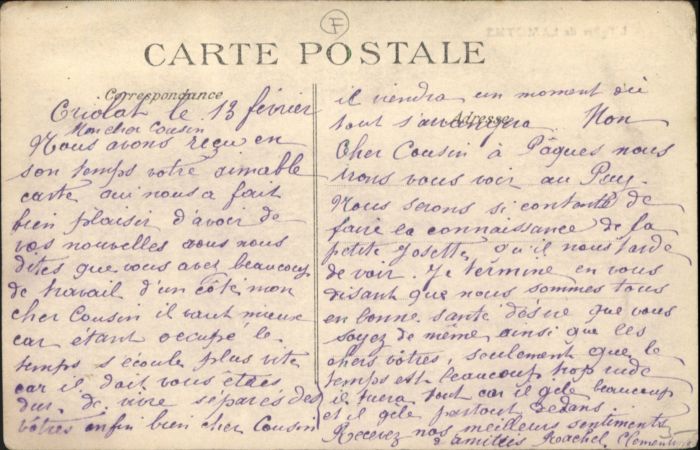 F
CARTE POSTALE
Correspondance
Criolat le 13 février
Mon cher Cousin
Nous avons reçu en
son temps votre aimable
carte qui nous a fait
bien plaisir d'avoir de
vos nouvelles vous nous
dites que vous avez beaucoup
de travail d'un côté mon
cher Cousin il vaut mieux
car étant occupé le
temps s'écoule plus vite
car il doit vous êtres
dur de vivre séparés des
vôtres enfin bien cher Cousin
il viendra un moment où
Adresse
tout s'arrangera Mon
Cher Cousin à Pâques nous
irons vous voir au Puy.
Nous serons si contents de
faire la connaissance de la
petite Josette, qu'il nous tarde
de voir. Je termine en vous
disant que nous sommes tous
en bonne santé désire que vous
soyez de même ainsi que les
chers vôtres, seulement que le
temps est beaucoup trop rude
il tuera tout car il gèle beaucoup
et il gèle partout dedans.
Recevez nos meilleurs sentiments
d'amitiés Rachel Clementine